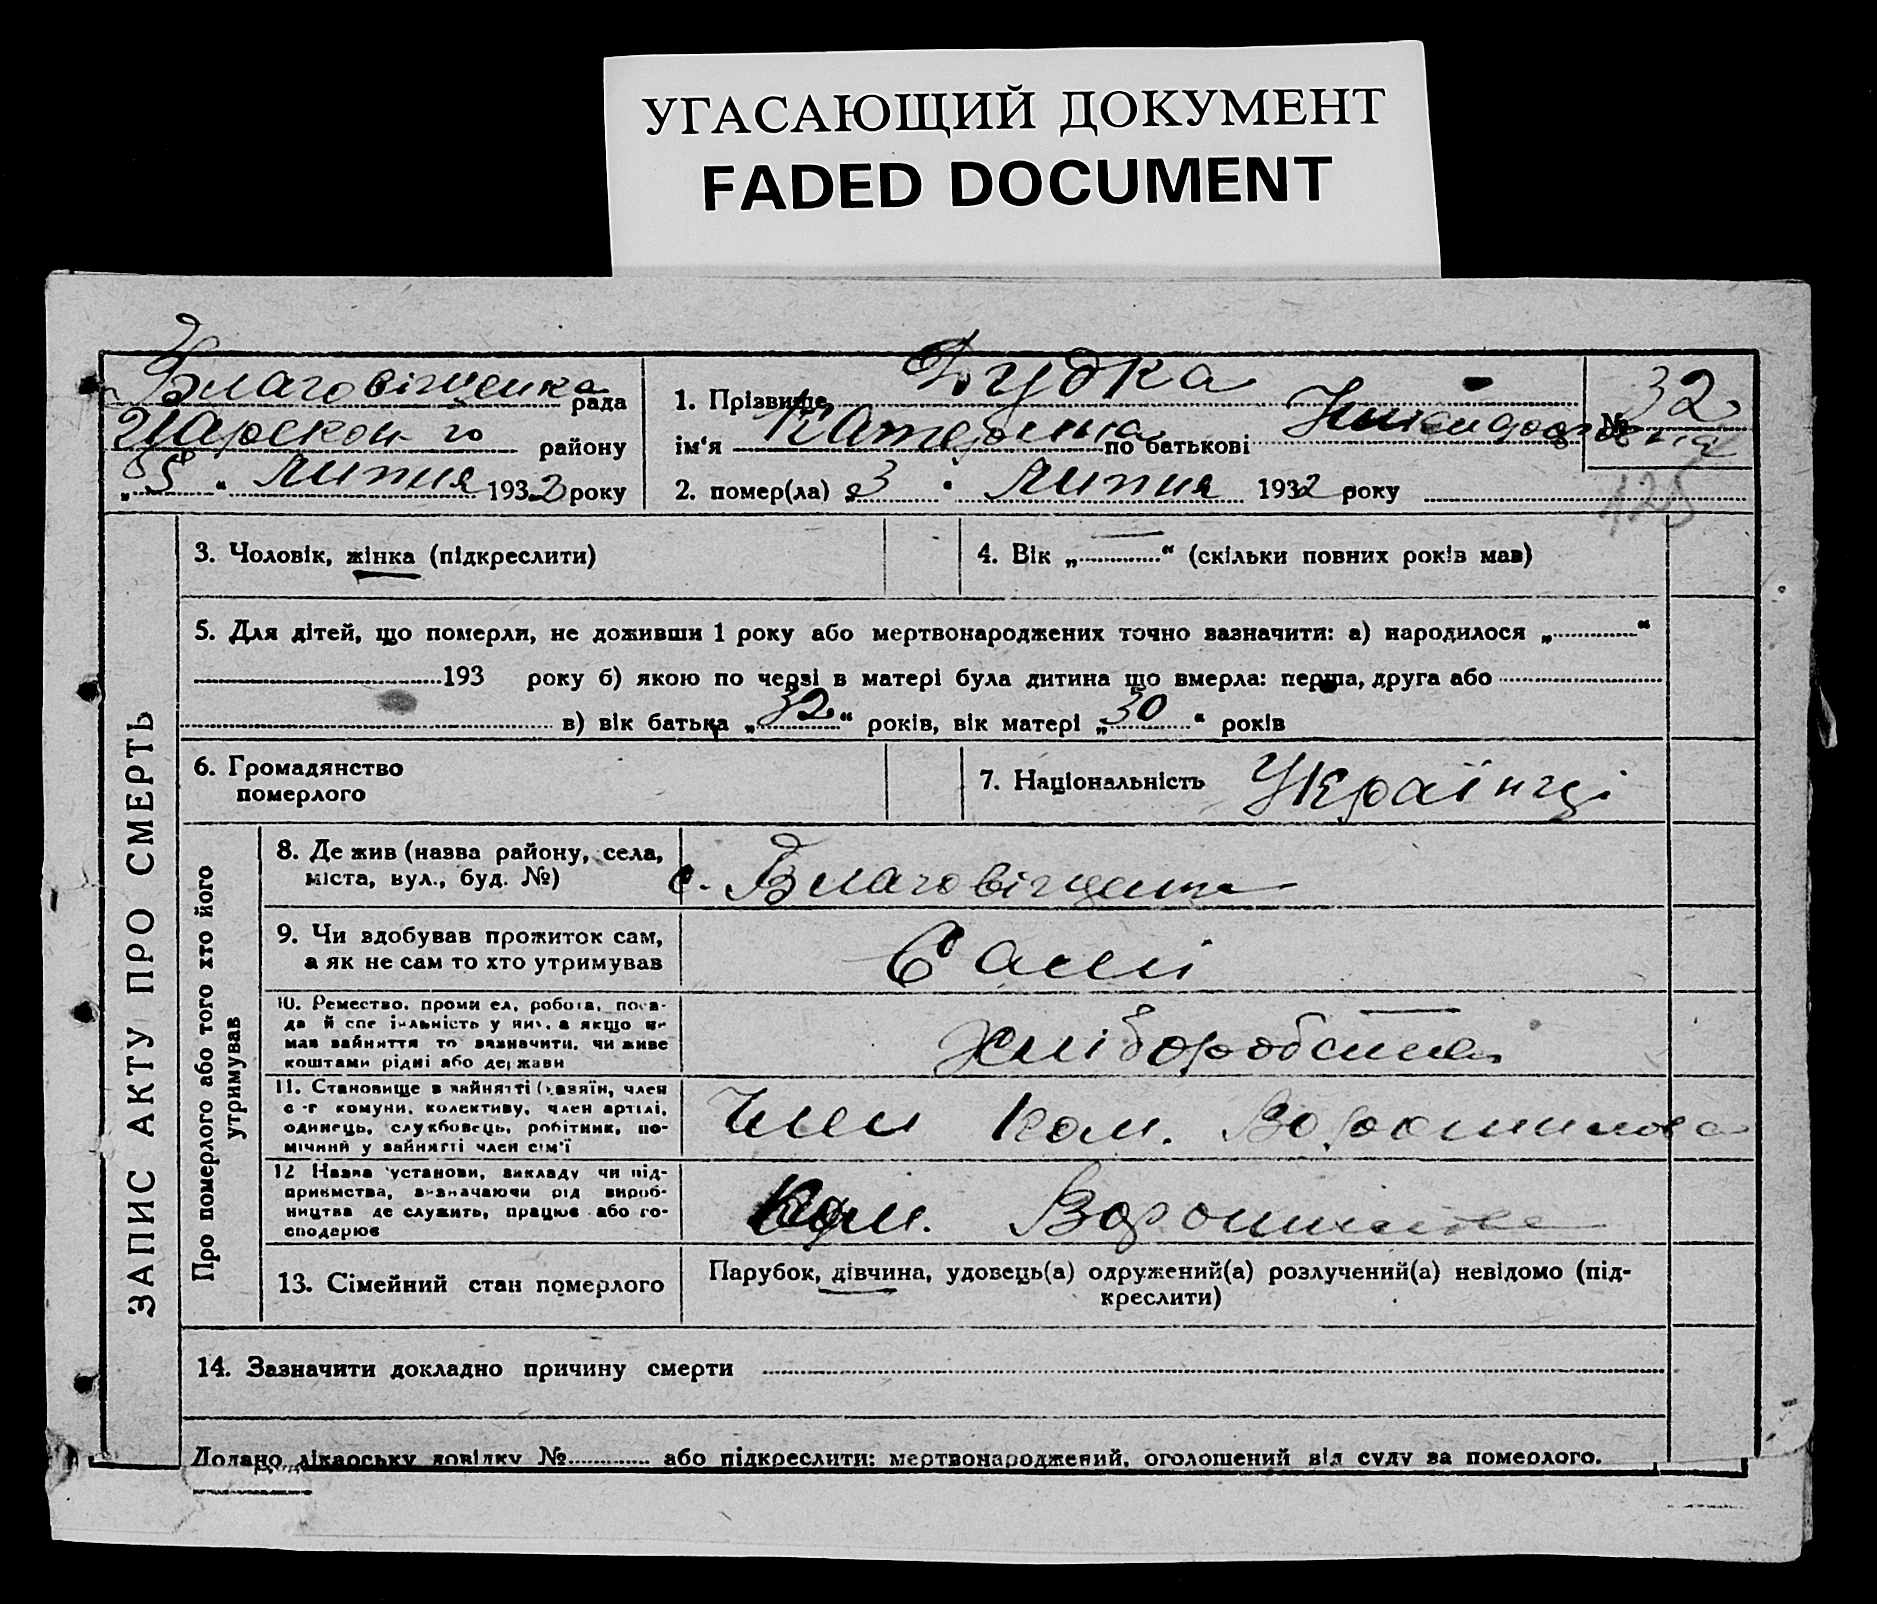 УГАСАЮЩИЙ ДОКУМЕНТ
FADED DOCUMENT
Благовіщенка рада
Царекон-го району
„5“ липня 1932 року
1. Прізвище Дудка
ім‘я Катерина по батькові
2. помер(ла) 3 “ липня 1932 року
№ 32
125
ЗАПИС АКТУ ПРО СМЕРТЬ
3. Чоловік, жінка (підкреслити)
4. Вік „ — “ (скільки повних років мав)
5. Для дітей, що померли, не доживши 1 року або мертвонароджених точно зазначити: а) народилося „ “
193 року б) якою по черзі в матері була дитина що вмерла: перша, друга або
в) вік батька „32“ років, вік матері „30“ років
6. Громадянство
померлого
7. Національність Українці
Про померлого або того хто його
утримував
8. Де жив (назва району, села,
міста, вул., буд. №)
с. Благовіщенка
9. Чи здобував прожиток сам,
а як не сам то хто утримував
Самі
10. Ремество, промисел, робота, поса-
да й спеціяльність у них, а якщо не
мав зайняття то зазначити, чи живе
коштами рідні або держави
11. Становище в зайнятті (хазяїн, член
с-г комуни, колективу, член артілі,
одинець, службовець, робітник, по-
мічний у зайнятті член сім'ї
Член Ком. Ворошилова
12 Назва установи, викладу чи під-
приємства, зазначаючи рід вироб-
ництва де служить, працює або го-
сподарює
Ком. Ворошилова
13. Сімейний стан померлого
Парубок, дівчина, удовець(а) одружений(а) розлучений(а) невідомо (під-
креслити)
14. Зазначити докладно причину смерти
Додано лікарську довідку № або підкреслити: мертвонароджений, оголошений від суду за померлого.